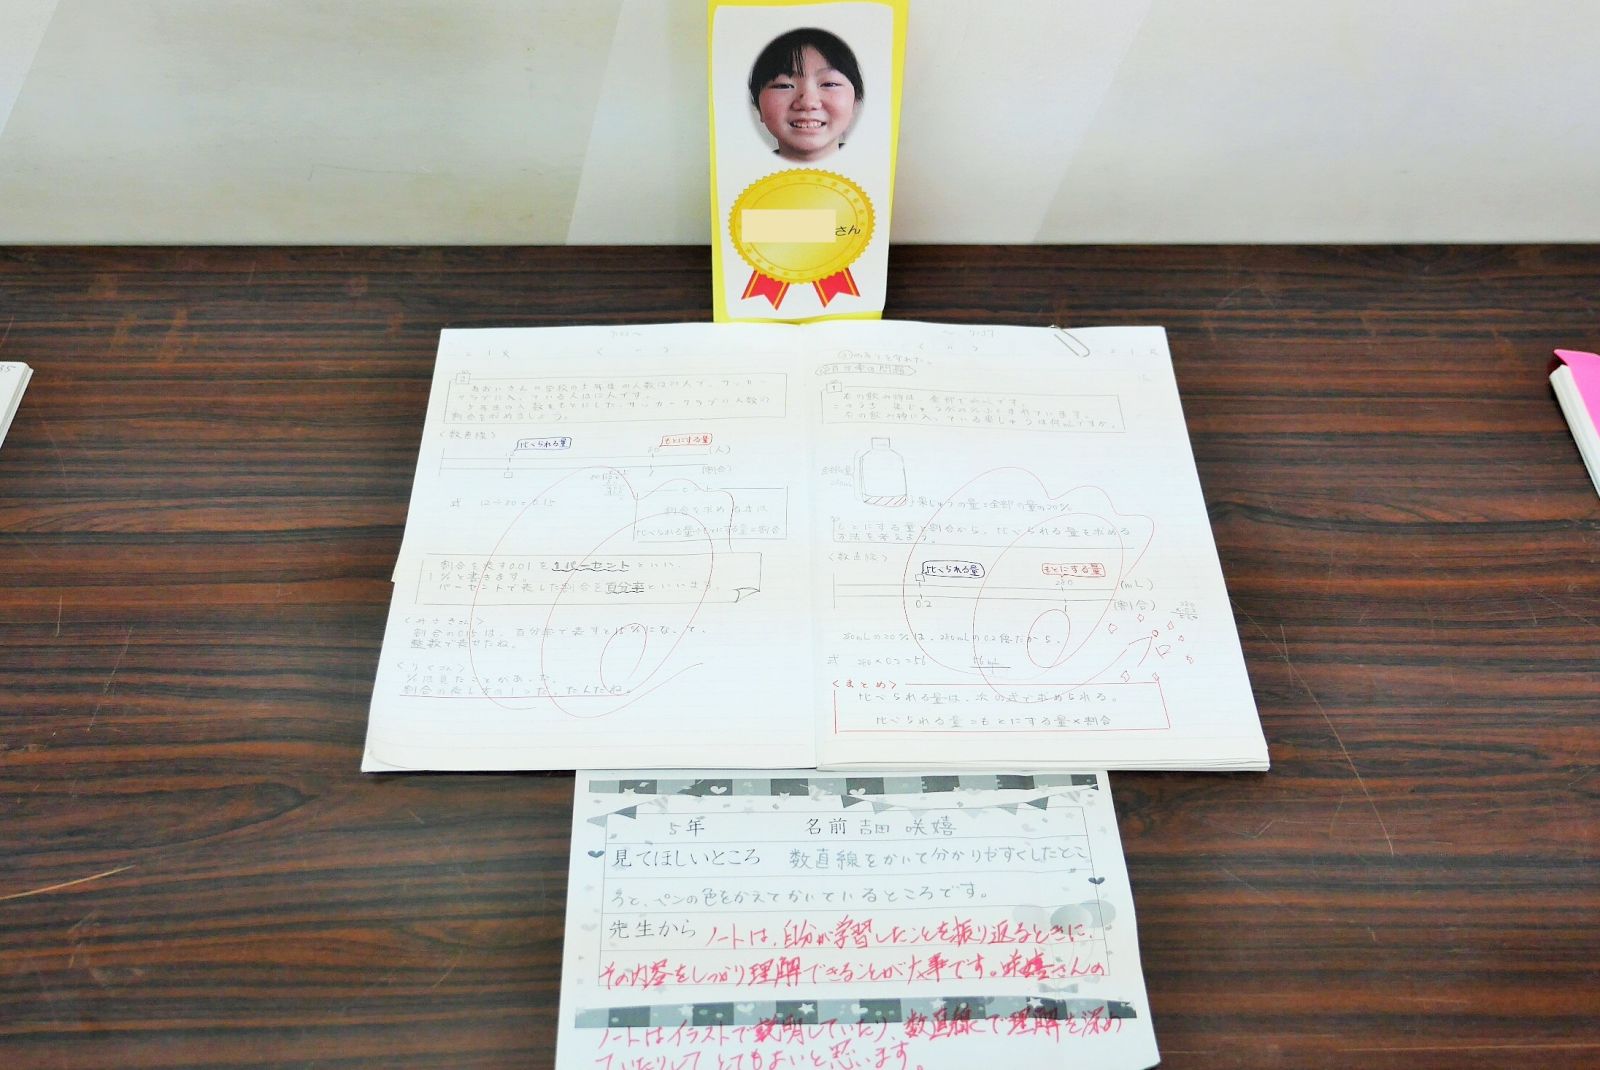 さん
2
あおいさんの学校の5年生の人数は80人で、サッカー
クラブに入っている人は12人です。
5年生の人数をもとにした、サッカークラブの人数の
割合を求めましょう。
〈数直線〉
比べられる量
もとにする量
(人)
(割合)
式 12÷80=0.15
ヒント
割合を求める方法
比べられる量÷もとにする量=割合
割合を表す0.01を1パーセントといい、
1%と書きます。
パーセントで表した割合を百分率といいます。
〈みさきさん〉
割合の0.15は、百分率で表すと15%になって、
整数で表せたね。
〈りくさん〉
%は見たことがあった。
割合の表し方の1つだったんだね。
1
右の飲み物は、全部で280mLです。
右の飲み物に入っている果じゅうは何mLですか。
果じゅうの量=全部の量の20%
もとにする量と割合から、比べられる量を求める
方法を考えよう。
〈数直線〉
比べられる量
もとにする量
280
(mL)
0.2
1
(割合)
280mLの20%は、280mLの0.2倍だから、
式 280×0.2=56
56mL
〈まとめ〉
比べられる量は、次の式で求められる。
比べられる量=もとにする量×割合
5年 名前 吉田 咲嬉
見てほしいところ 数直線をかいて分かりやすくしたとこ
ろと、ペンの色をかえてかいているところです。
先生から ノートは、自分が学習したことを振り返るときに、
その内容をしっかり理解できることが大事です。咲嬉さんの
ノートはイラストで説明していたり、数直線で理解を深め
ていたりしてとてもよいと思います。